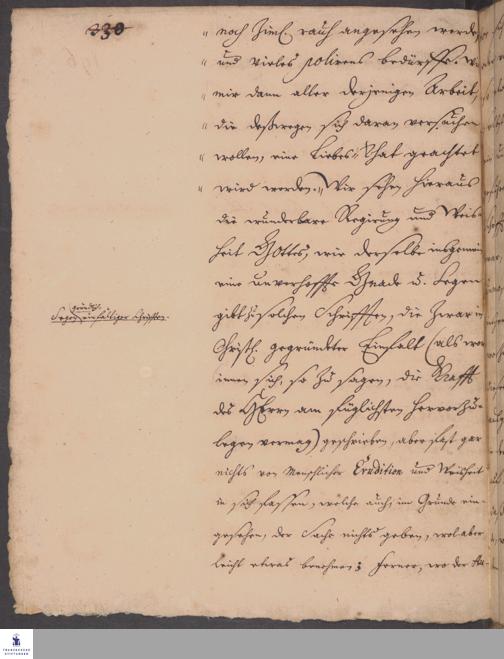 330
„ noch Ziml. rauh angesehen werde
„ und vieles polirens bedürffe.
„ mir dann aller derjenigen Arbeit,
„ die deßwegen sich daran versuchen
„ wollen, eine Liebes-That geachtet
„ wird werden.„ Wir sehen hieraus
die wunderbare Regirung und Weis-
heit Gottes, wie derselbe insgemein
eine unverhoffte Gnade u. Segen
gibt zu solchen Schrifften, die zwar in
Christl. gegründeter Einfalt (als wor
innen sich, so zu sagen, die Krafft
des HErrn am füglichsten hervorzu-
legen vermag) geschrieben, aber fast gar
nichts von Menschlicher Erudition und Weisheit
in sich fassen, welche auch, im Grunde ein-
gesehen, der Sache nichts geben, wol aber
leicht etwas benehmen; ferner, wo der
Segen einfältiger Schriften.
FRANCKESCHE
STIFTUNGEN